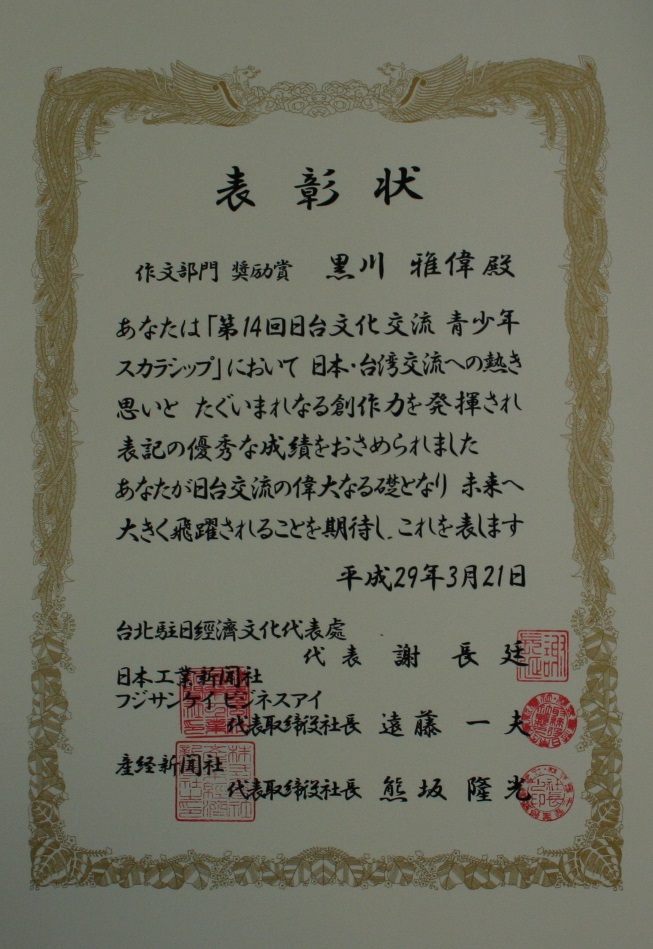 表彰状
作文部門 奨励賞 黒川 雅偉殿
あなたは「第14回日台文化交流 青少年
スカラシップ」において 日本・台湾交流への熱き
思いと たぐいまれなる創作力を発揮され
表記の優秀な成績をおさめられました
あなたが日台交流の偉大なる礎となり 未来へ
大きく飛躍されることを期待し、これを表します
平成29年3月21日
台北駐日經濟文化代表處
代表 謝 長 廷
日本工業新聞社
フジサンケイ ビジネスアイ
代表取締役社長 遠藤 一夫
産経新聞社
代表取締役社長 熊坂 隆光